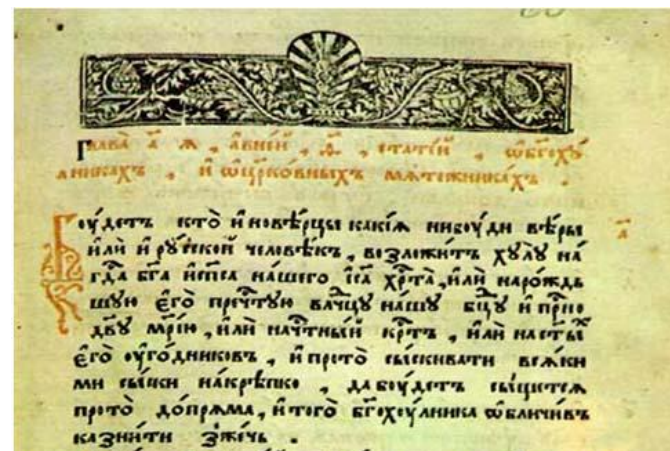 Глава̀ а҃ я , а в не́й , ѳ҃ , стате́й , ѡ бг҃оху́
лникахъ , и҆ ѡ цр҃ко́вныхъ мяте́жникахъ .
Боу́детъ кто̀ и҆новѣ́рцы какі́я нибоу́ди вѣ́ры
и҆лѝ и҆ ру́ской человѣ́къ , возложи́тъ ху́лу на́
гд҇а бг҃а и҆ сп҃са на́шего і҆с҃а хр҇та̀ , и҆лѝ наро́ждь
шую є҆го̀ преч҇тую влд҇чцу на́шу бц҃у и҆ прн҇о
дв҃у мр҃і́ю , и҆лѝ на ч҇тны́й кр҇тъ , и҆лѝ на ст҃ы́ѧ
є҆го̀ оу҆го́дниковъ , и҆ прото̀ сы́скивати вся́ки
ми сы́ски на́крѣпко , да боу́детъ сы́щется
прото̀ до́пряма , и҆ того̀ бг҃охоу́лника ѡ҆бличи́въ
казни́ти зже́чь .
а҃